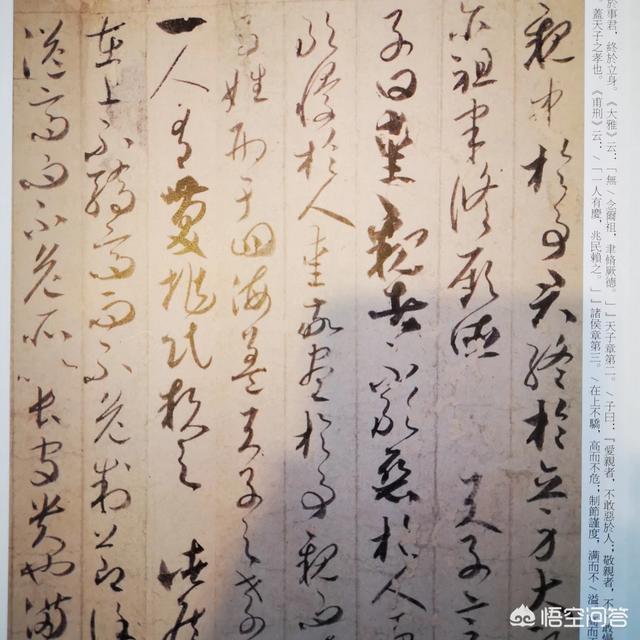 於事君，終於立身。《大雅》云：\「無\念爾祖，聿脩厥德。」」天子章第二。\子曰：「愛親者，不敢惡於人；敬親者，不
蓋天子之孝也。《甫刑》云：\「一人有慶，兆民賴之。」」諸侯章第三。\在上不驕，高而不危，制節謹度，满而不\溢。
親中於事君終於立身大
尔祖聿脩厥德 天子章
子曰愛親者不敢惡於人
敢慢於人愛敬盡於事親而
百姓刑于四海蓋天子之孝
一人有慶兆民賴之 諸侯
在上不驕高而不危制節謹
溢高而不危所以長守貴也滿
悟空问答